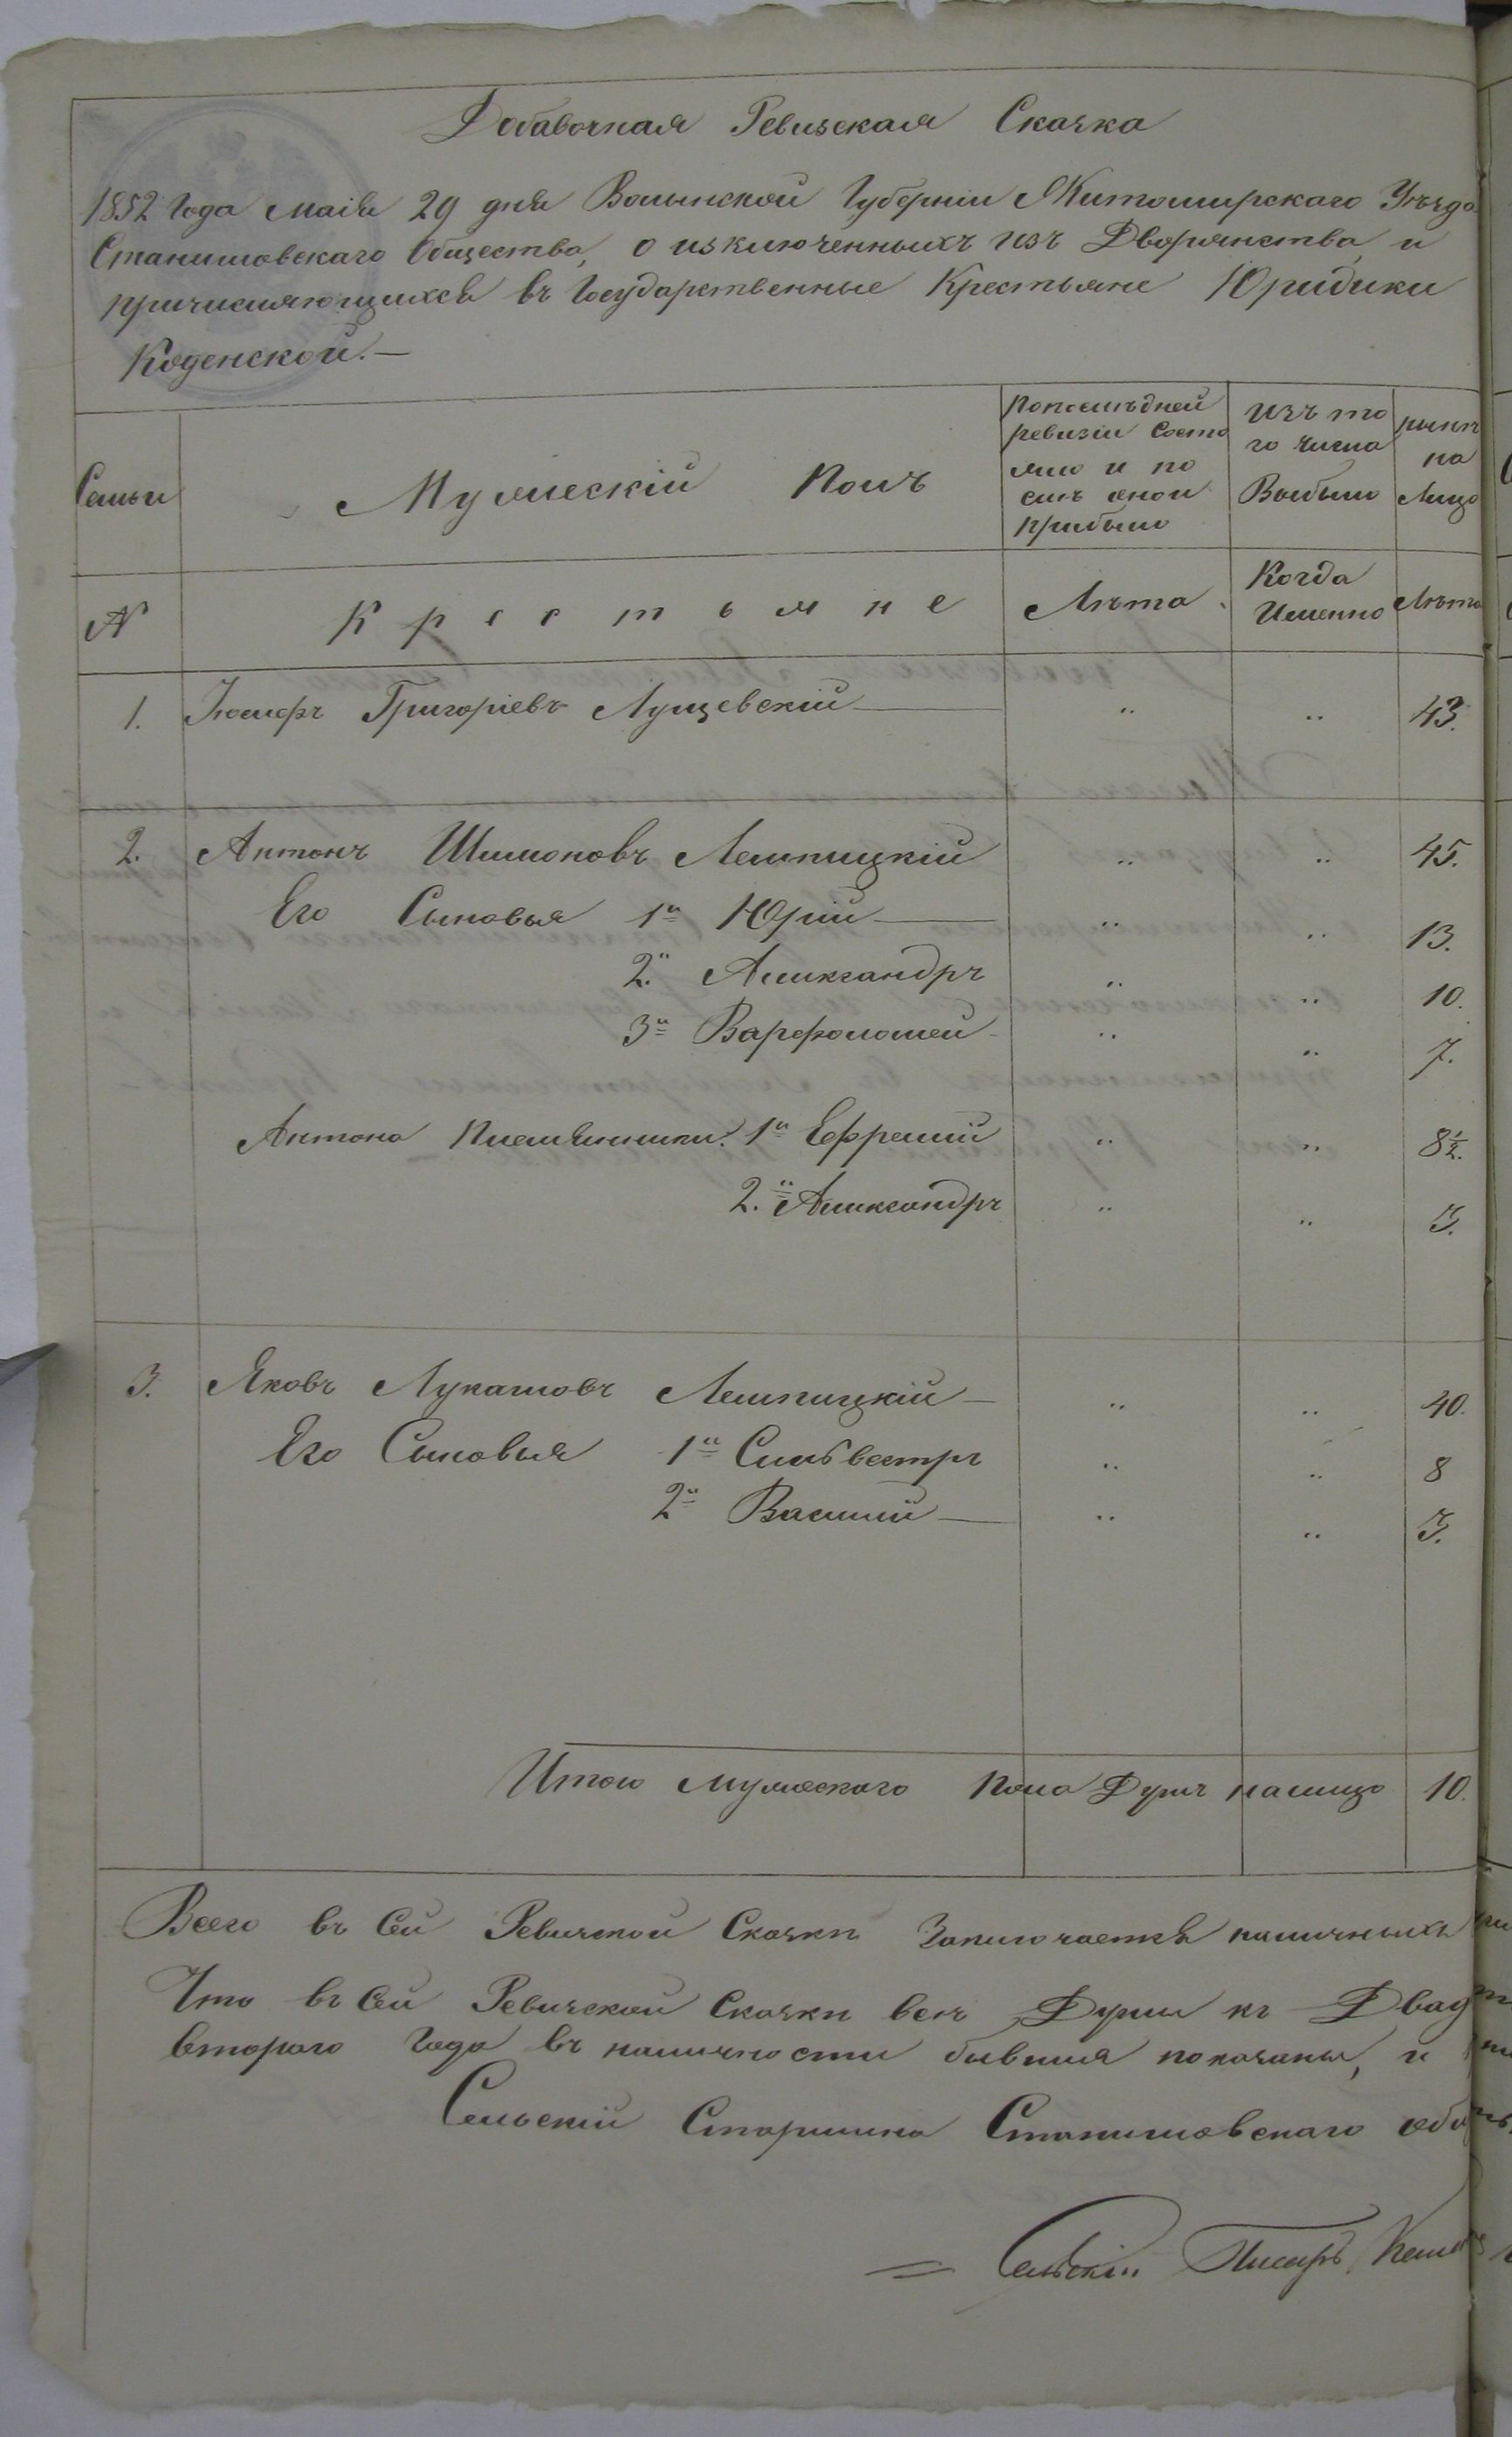 Добавочная Ревизская Сказка
1852 Года Маія 29 дня Волынской Губерніи Житомирскаго Уѣзда
Станишовскаго Общества, о изключенныхъ изъ Дворянства, и
причисляющихся въ Государственные Крестьяне Юридики
Коденской. —
Семьи
Мужескій Полъ
По послѣдней
ревизіи Состо
яло и по
слѣ оной
прибыло
Изъ то
го числа
Выбыло
нынѣ
на
Лицо
№
Крестьяне
Лѣта
Когда
Именно
Лѣта
1. Іосифъ Григоріевъ Лущевскій — " " 43.
2. Антонъ Шимоновъ Лемпицкій " " 45.
Его Сыновья 1й Юрій — " " 13.
2й Аликсандръ " " 10.
3й Варфоломей " " 7.
Антона Племянники. 1й Ефремій " " 8½.
2й Аликсандръ " " 3.
3. Яковъ Лукашовъ Лемпицкій — " " 40.
Его Сыновья 1й Сильвестръ " " 8
2й Василій — " " 3.
Итого мужескаго Пола Душъ налицо 10.
Всего въ Сей Ревизской Сказкѣ Заключается наличныхъ
Что въ Сей Ревизской Сказки всѣ Души къ Двад
второго Года въ наличности бывшия показаны, и
Сельскій Старшина Станишовскаго об
= Сельскій Писарь